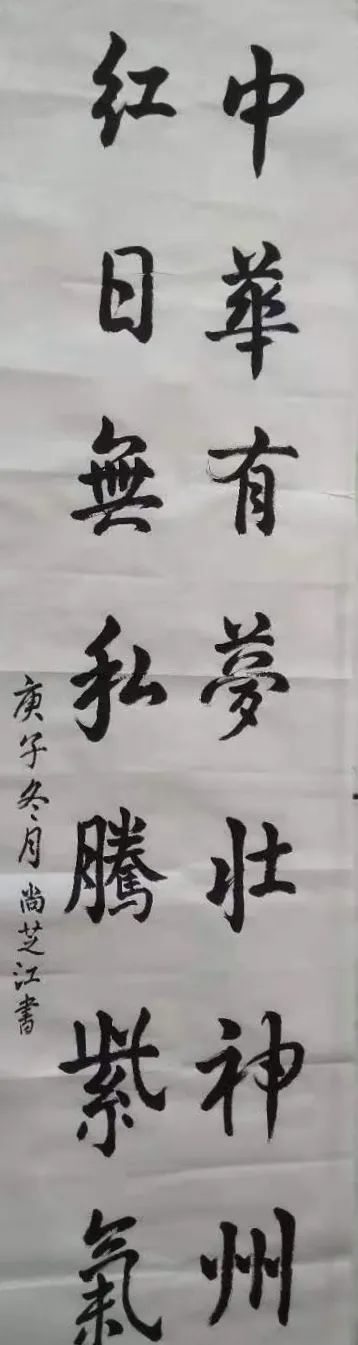 中華有夢壮神州
红日無私騰紫氣
庚子冬月尚芝江書